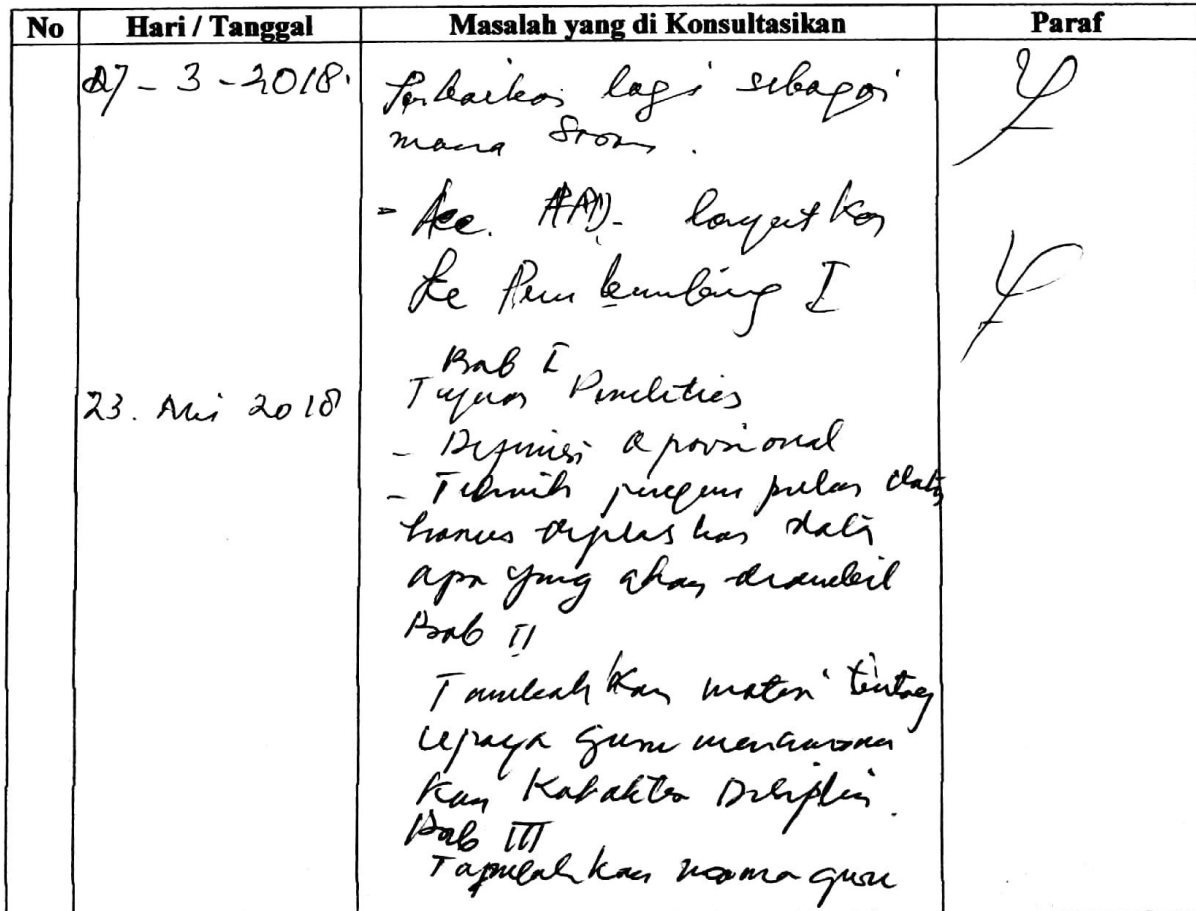 No Hari / Tanggal Masalah yang di Konsultasikan Paraf
27 - 3 - 2018. Perbaikan lagi sebagai
mana Saran.
- Acc. lanjutkan
ke Pembimbing I
Bab I
23. Mei 2018 Tujuan Penelitian
- Definisi Operasional
- Teknik pengumpulan data
harus dijelaskan data
apa yang akan diambil
Bab II
Tambahkan materi tentang
upaya guru menanam
kan Karakter Disiplin.
Bab III
Tambahkan nama guru